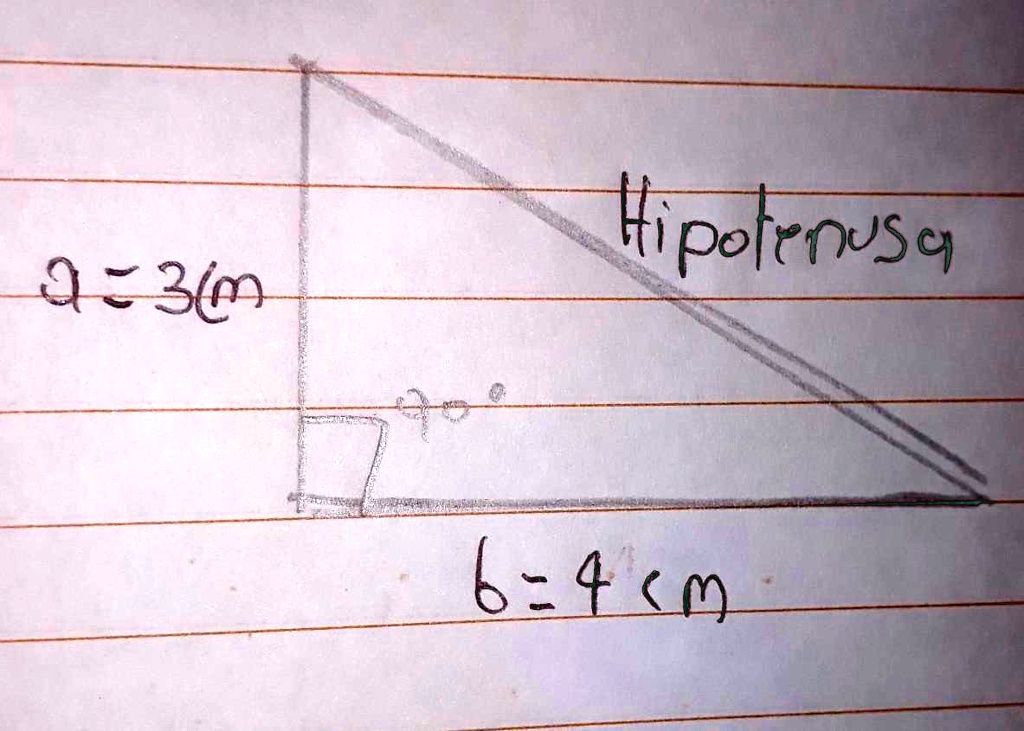 Hipotenusa
a = 3cm
90°
b = 4 cm